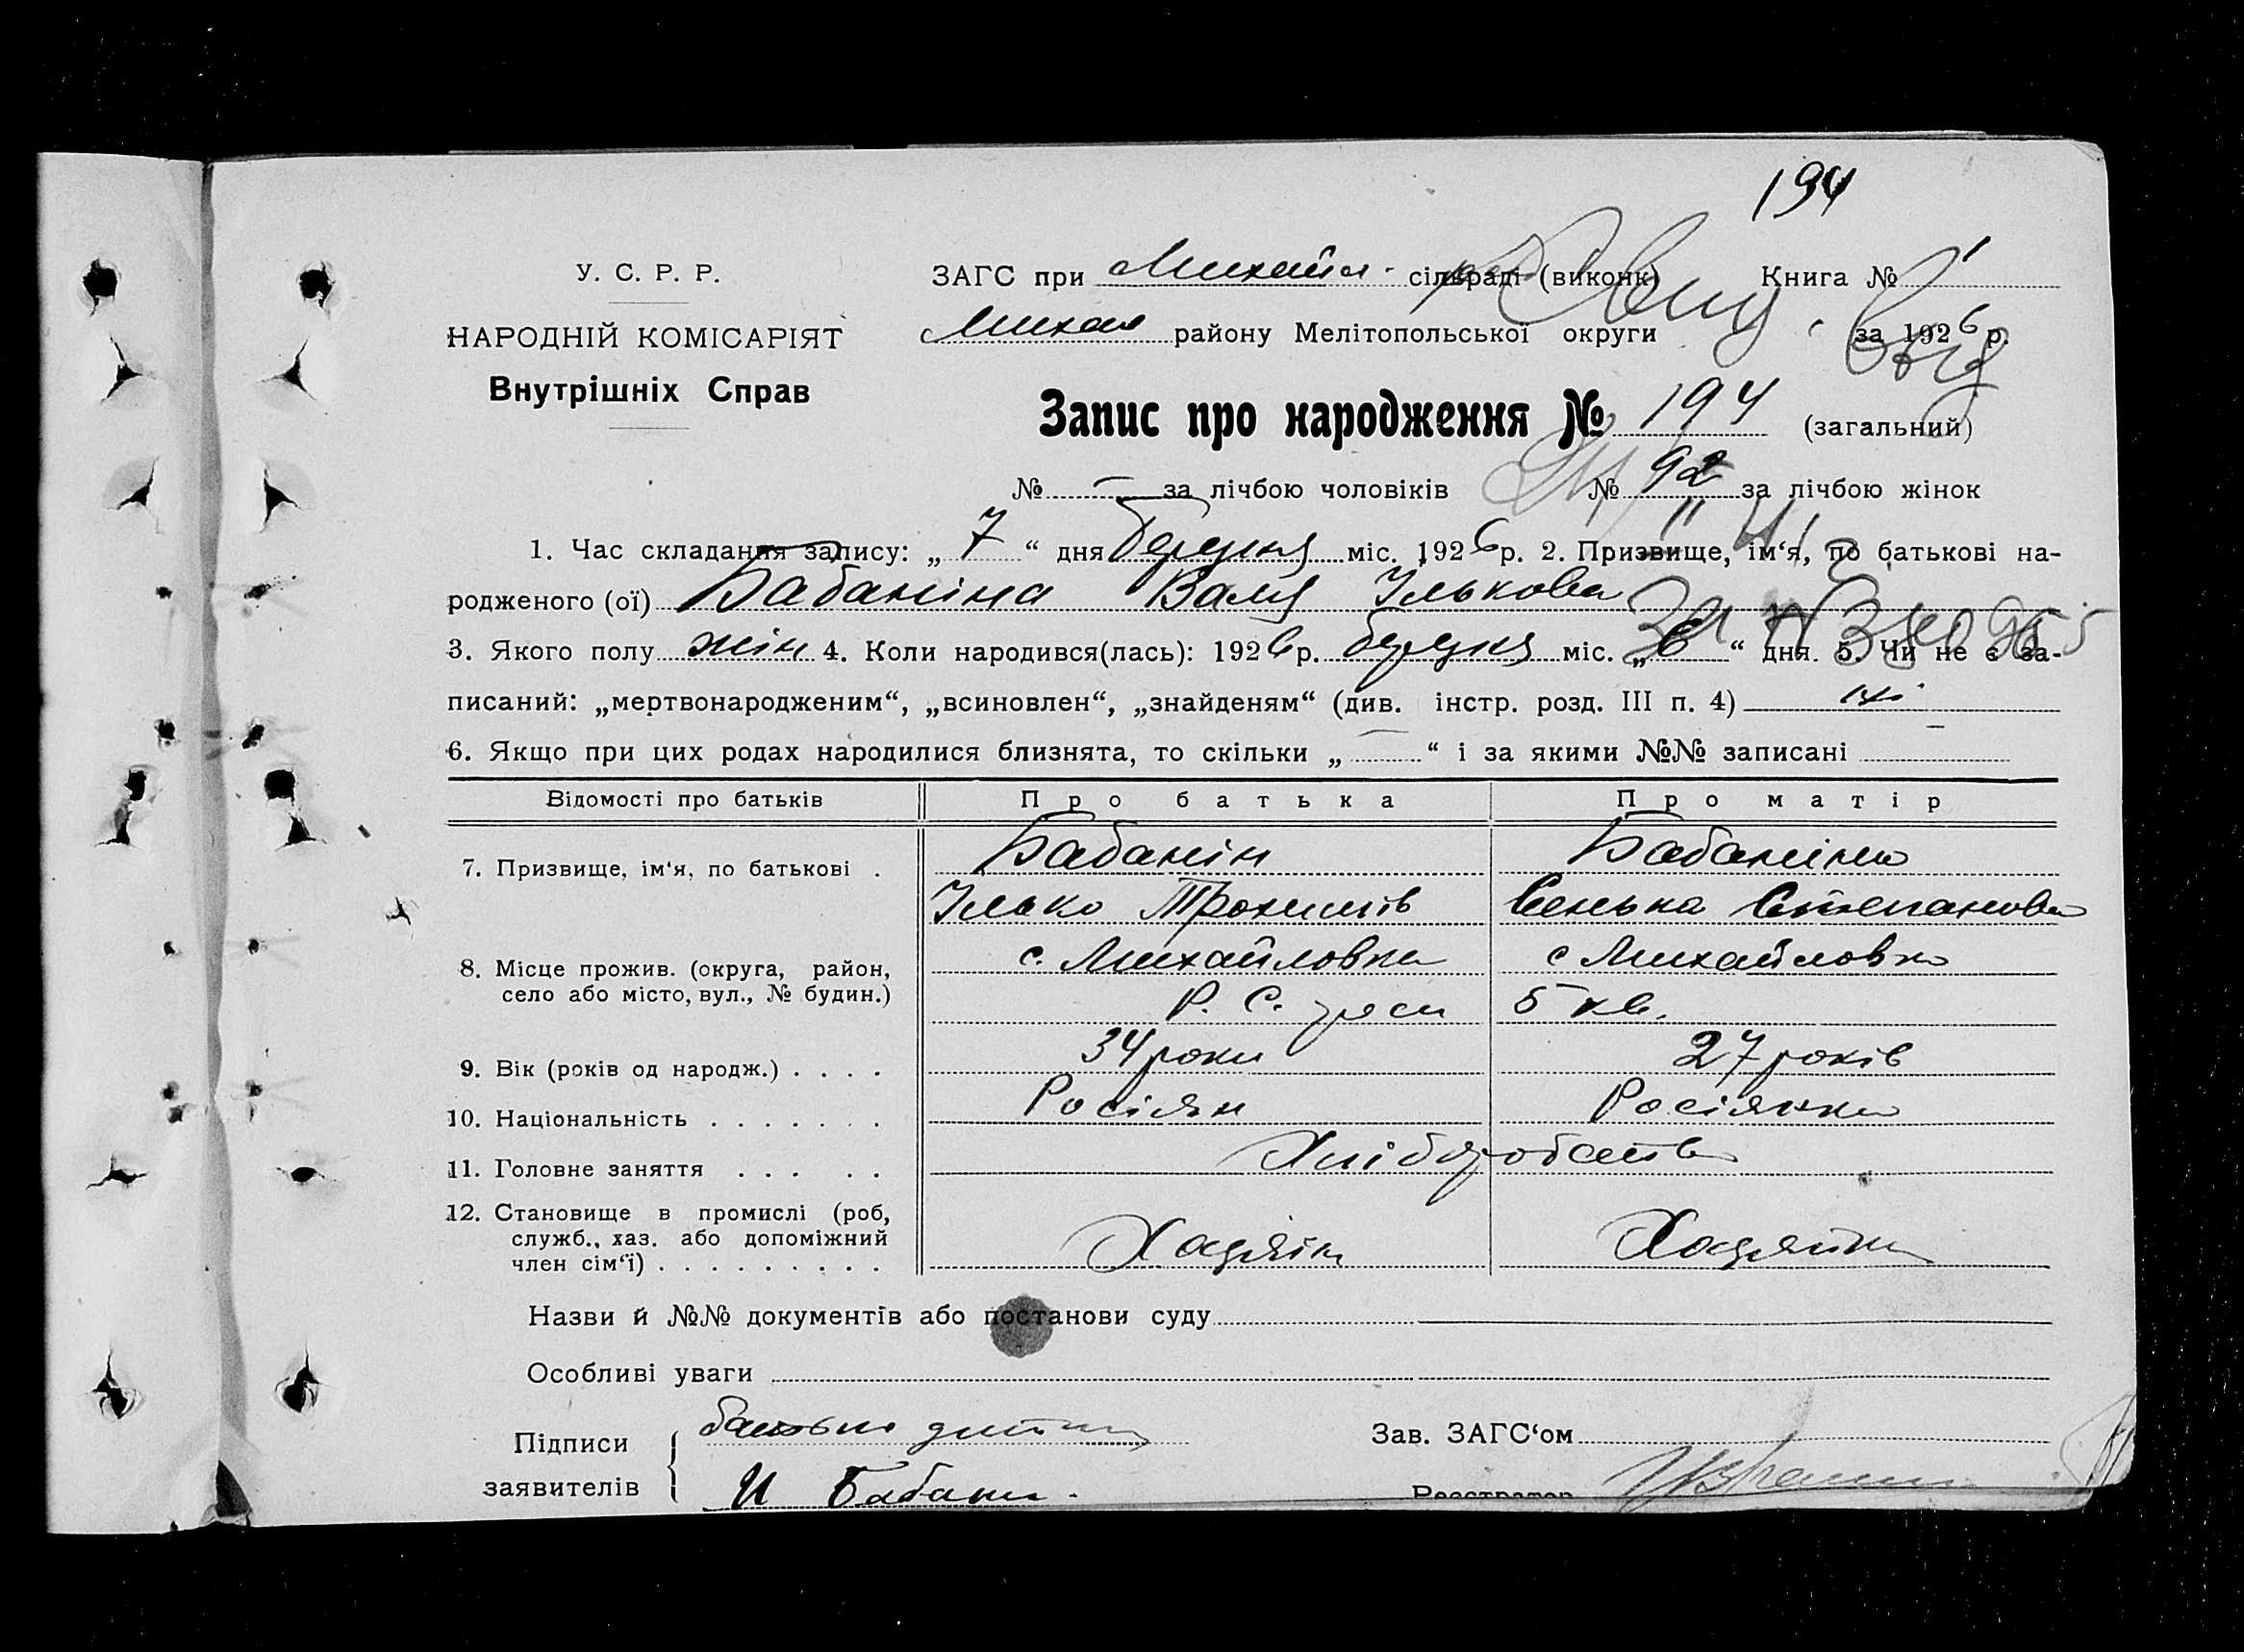 194
У. С. Р. Р.
НАРОДНІЙ КОМІСАРІЯТ
Внутрішніх Справ
ЗАГС при Михайл. сільраді (виконк) Книга № 1
Михай району Мелітопольської округи за 1926 р.
Запис про народження № 194 (загальний)
№ — за лічбою чоловіків № 92 за лічбою жінок
1. Час складання запису: „ 7 “ дня березня міс. 1926 р. 2. Призвище, ім‘я, по батькові на-
родженого (ої) Бабаніна Валя Ількова
3. Якого полу жін 4. Коли народився(лась): 1926 р. березня міс. „ 6 “ дня. 5. Чи не є за-
писаний: „мертвонародженим“, „всиновлен“, „знайденям“ (див. інстр. розд. III п. 4) ні
6. Якщо при цих родах народилися близнята, то скільки „ — “ і за якими №№ записані —
Відомості про батьків Про батька Про матір
7. Призвище, ім‘я, по батькові . Бабанін Бабаніна
Ілько Трохимів Сенька Степанова
8. Місце прожив. (округа, район, с. Михайловка с Михайловка
село або місто, вул., № будин.) Р. С. 5 кв.
9. Вік (років од народж.) . . . . 34 роки 27 років
10. Національність . . . . . . . Росіян Росіянка
11. Головне заняття . . . . . Хліборобство
12. Становище в промислі (роб,
служб., хаз. або допоміжний
член сім‘ї) . . . . . . . . . Хазяїн Хазяйка
Назви й №№ документів або постанови суду
Особливі уваги
Підписи батько дитини Зав. ЗАГС‘ом
заявителів И Бабанин Реєстратор